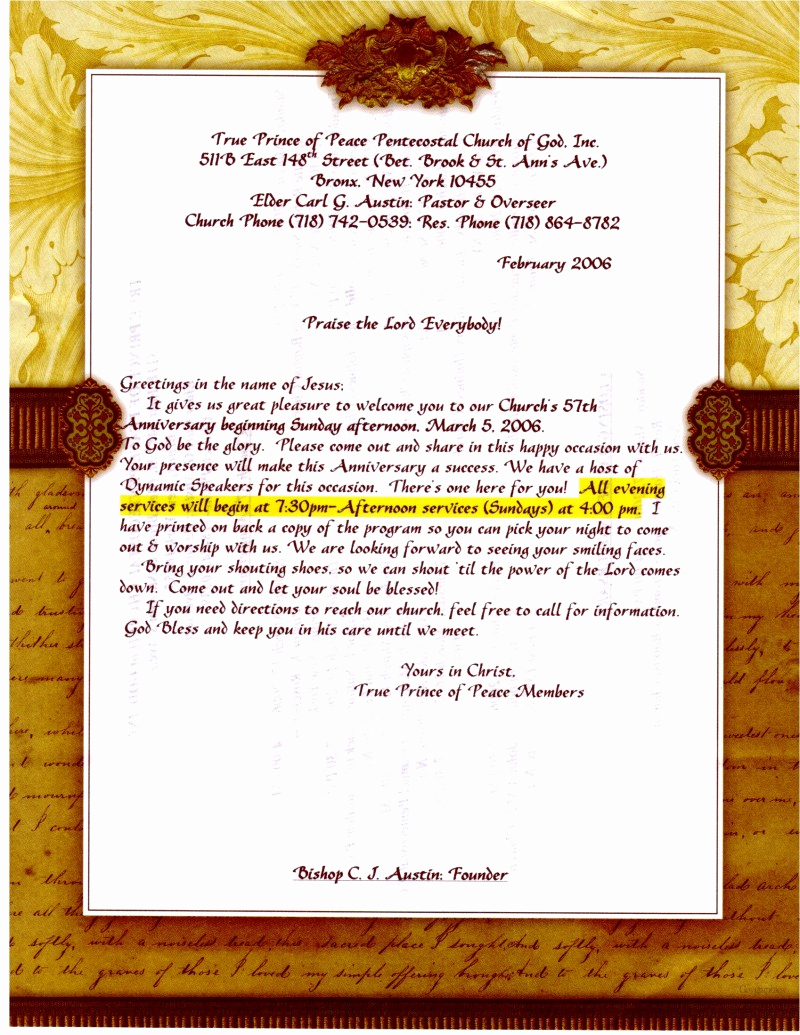 True Prince of Peace Pentecostal Church of God, Inc.
511B East 148th Street (Bet. Brook & St. Ann's Ave.)
Bronx, New York 10455
Elder Carl G. Austin: Pastor & Overseer
Church Phone (718) 742-0539: Res. Phone (718) 864-8782
February 2006
Praise the Lord Everybody!
Greetings in the name of Jesus;
It gives us great pleasure to welcome you to our Church's 57th
Anniversary beginning Sunday afternoon, March 5, 2006.
To God be the glory. Please come out and share in this happy occasion with us.
Your presence will make this Anniversary a success. We have a host of
Dynamic Speakers for this occasion. There's one here for you! All evening
services will begin at 7:30pm-Afternoon services (Sundays) at 4:00 pm. I
have printed on back a copy of the program so you can pick your night to come
out & worship with us. We are looking forward to seeing your smiling faces.
Bring your shouting shoes, so we can shout 'til the power of the Lord comes
down. Come out and let your soul be blessed!
If you need directions to reach our church, feel free to call for information.
God Bless and keep you in his care until we meet.
Yours in Christ,
True Prince of Peace Members
Bishop C. J. Austin: Founder
softly, with a noiseless tread, this sacred place I sought, And softly, with a noiseless tread,
to the graves of those I loved my simple offering brought, And to the graves of those I lov